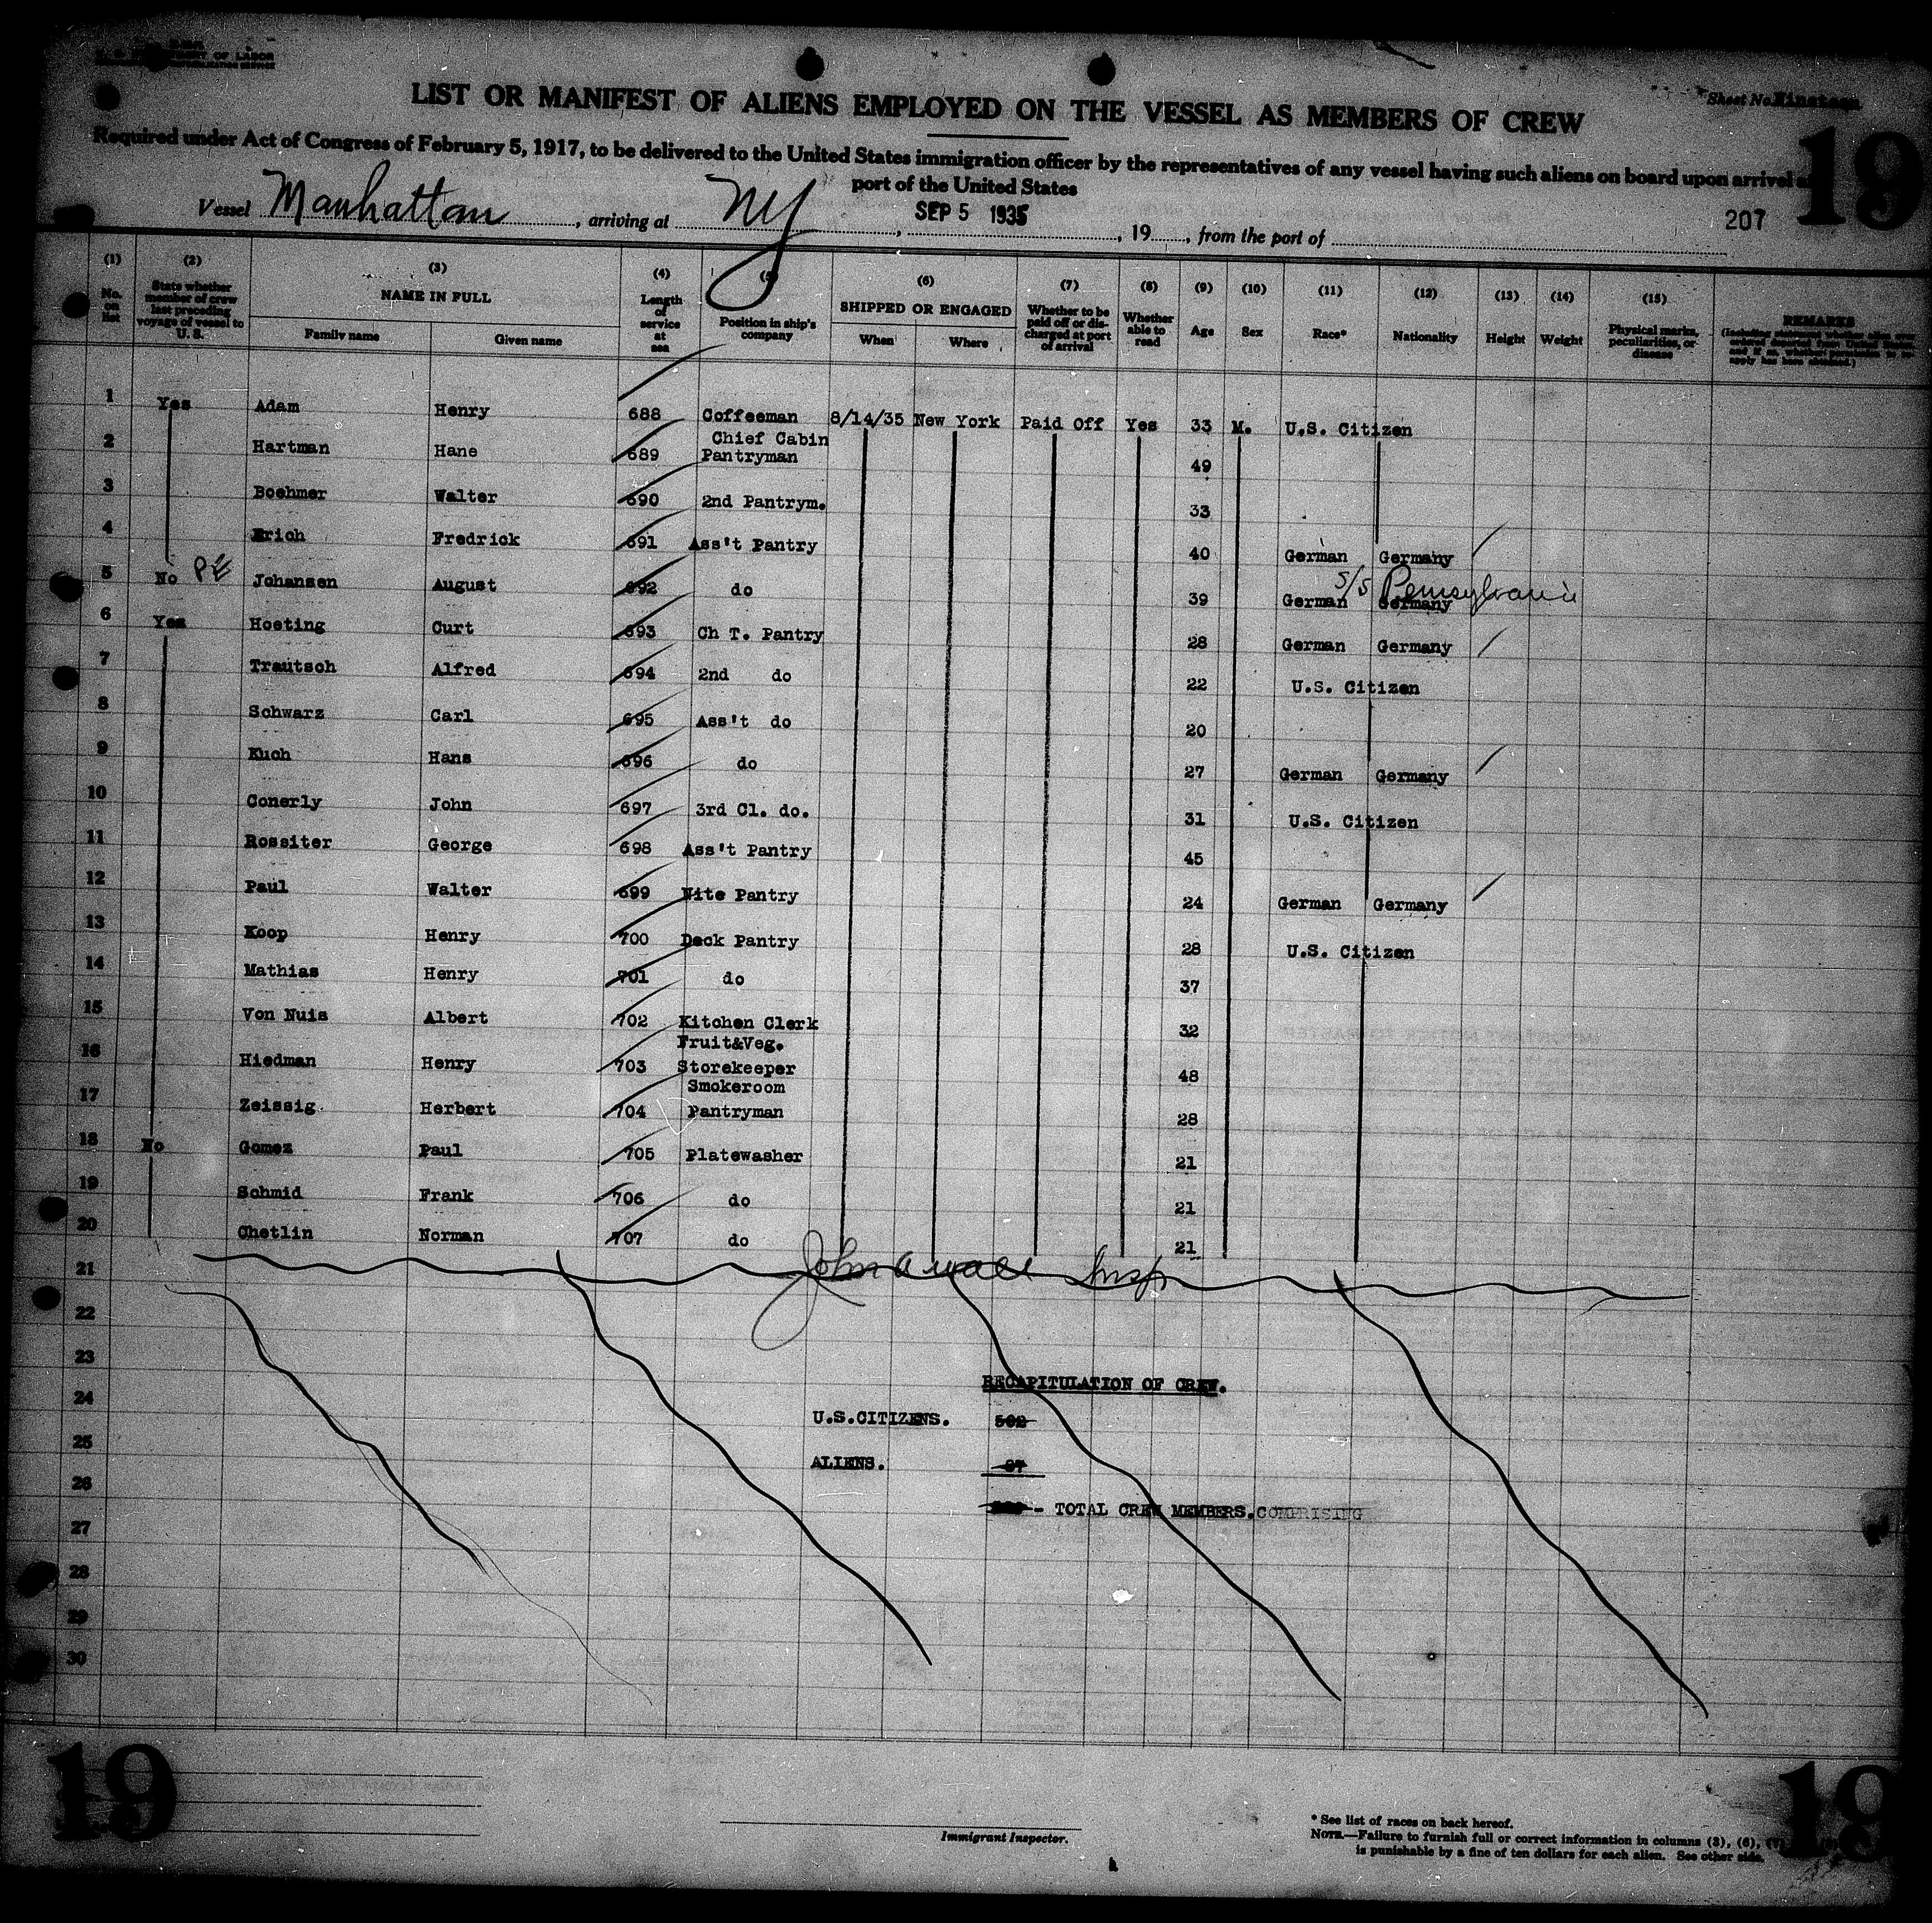 LIST OR MANIFEST OF ALIENS EMPLOYED ON THE VESSEL AS MEMBERS OF CREW
Sheet No. Nineteen
19
Required under Act of Congress of February 5, 1917, to be delivered to the United States immigration officer by the representatives of any vessel having such aliens on board upon arrival
port of the United States
Vessel Manhattan, arriving at NY, SEP 5 1935, 19, from the port of
207
(1) (2) (3) (4) (5) (6) (7) (8) (9) (10) (11) (12) (13) (14) (15)
No. on list
State whether member of crew last preceding voyage of vessel to U. S.
NAME IN FULL
Family name Given name
Length of service at sea
Position in ship's company
SHIPPED OR ENGAGED
When Where
Whether to be paid off or discharged at port of arrival
Whether able to read
Age Sex Race* Nationality Height Weight
Physical marks, peculiarities, or disease
REMARKS
1 Yes Adam Henry 688 Coffeeman 8/14/35 New York Paid Off Yes 33 M. U.S. Citizen
2 Hartman Hane 689 Chief Cabin Pantryman 49
3 Boehmer Walter 690 2nd Pantrym. 33
4 Erich Fredrick 691 Ass't Pantry 40 German Germany
5 No PE Johansen August 692 do 39 German Germany S/S Pennsylvania
6 Yes Hoeting Curt 693 Ch T. Pantry 28 German Germany
7 Trautsch Alfred 694 2nd do 22 U.S. Citizen
8 Schwarz Carl 695 Ass't do 20
9 Kuch Hans 696 do 27 German Germany
10 Conerly John 697 3rd Cl. do. 31 U.S. Citizen
11 Rossiter George 698 Ass't Pantry 45
12 Paul Walter 699 Nite Pantry 24 German Germany
13 Koop Henry 700 Deck Pantry 28 U.S. Citizen
14 Mathias Henry 701 do 37
15 Von Nuis Albert 702 Kitchen Clerk 32
16 Hiedman Henry 703 Fruit&Veg. Storekeeper 48
17 Zeissig. Herbert 704 Smokeroom Pantryman 28
18 No Gomez Paul 705 Platewasher 21
19 Schmid Frank 706 do 21
20 Chetlin Norman 707 do 21
21
John A Insp
22
23
RECAPITULATION OF CREW.
24
U.S.CITIZENS. 502
25
ALIENS. 97
26
- TOTAL CREW MEMBERS. COMPRISING
27
28
29
30
19
Immigrant Inspector.
* See list of races on back hereof.
NOTE.—Failure to furnish full or correct information in columns (3), (6),
is punishable by a fine of ten dollars for each alien. See other side.
19